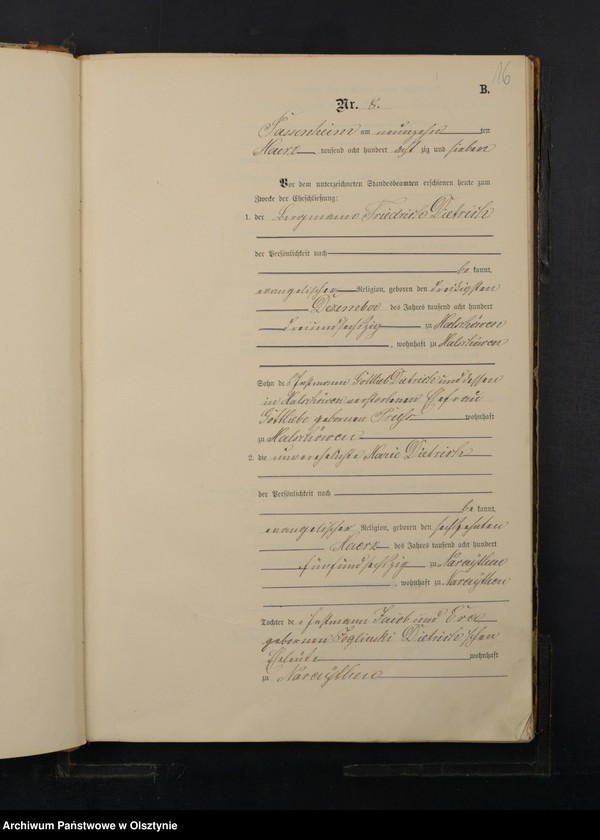 16
B.
Nr. 8.
Passenheim am neunzehn ten
Maerz tausend acht hundert acht zig und sieben
Vor dem unterzeichneten Standesbeamten erschienen heute zum
Zwecke der Eheschließung:
1. der Bergmann Friedrich Dietrich
der Persönlichkeit nach
be kannt,
evangelischer Religion, geboren den dreißigsten
Dezember des Jahres tausend acht hundert
dreiundsechszig zu Malschöwen
, wohnhaft zu Malschöwen
Sohn des Instmann Gottlieb Dietrich und dessen
in Malschöwen verstorbenen Ehefrau
Gottliebe geborenen wohnhaft
zu Malschöwen
2. die unverehelichte Marie Dietrich
der Persönlichkeit nach
be kannt,
evangelischer Religion, geboren den sechszehnten
Maerz des Jahres tausend acht hundert
fünfundsechszig zu Narajthen
, wohnhaft zu Narajthen
Tochter der Instmann Jacob und Eva
geborenen Soglinski Dietrich'schen
Eheleute wohnhaft
zu Narajthen
Archiwum Państwowe w Olsztynie